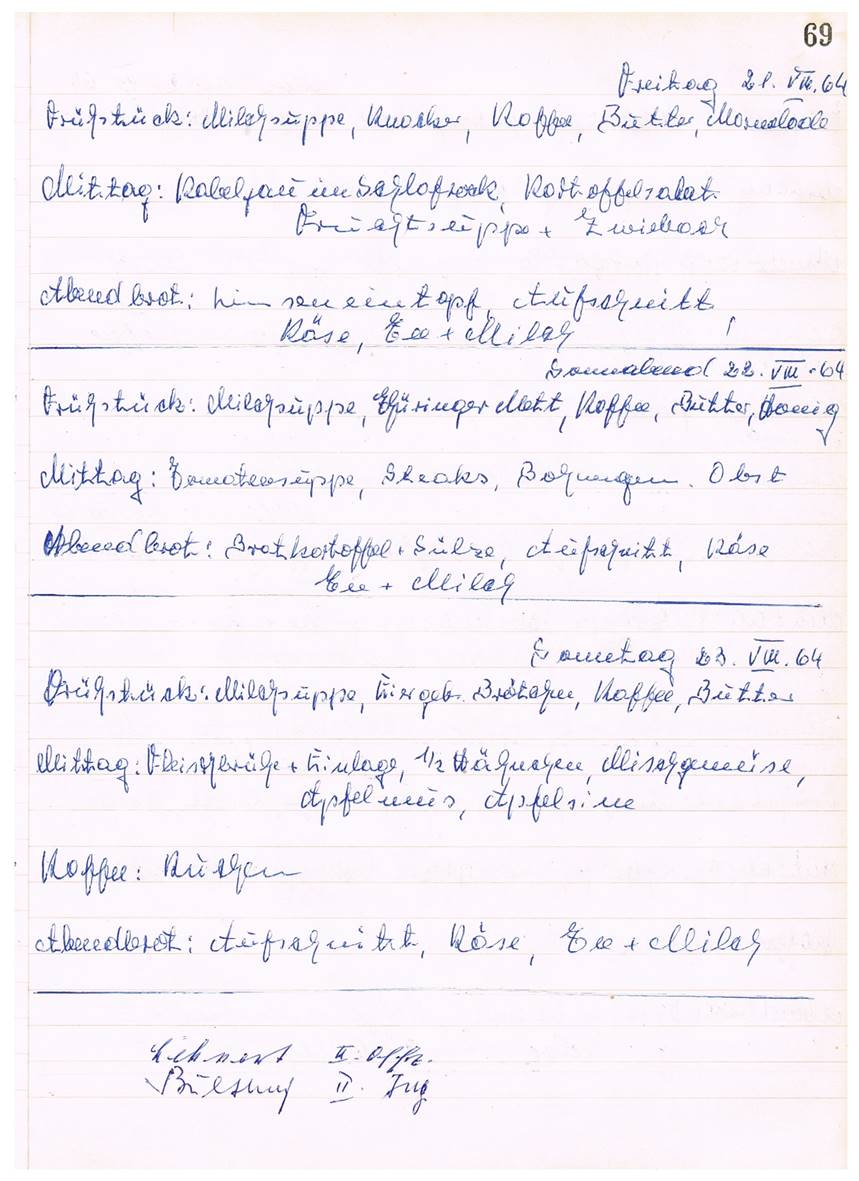 69
Freitag 21. VIII. 64
Frühstück: Milchsuppe, Knacker, Kaffee, Butter, Marmelade
Mittag: Kabeljau im Schlafrock, Kartoffelsalat
Fruchtsuppe + Zwieback
Abendbrot: Linseneintopf, Aufschnitt
Käse, Tee + Milch
Sonnabend 22. VIII. 64
Frühstück: Milchsuppe, Thüringer Mett, Kaffee, Butter, Honig
Mittag: Tomatensuppe, Steaks, Bohnen. Obst
Abendbrot: Bratkartoffel + Sülze, Aufschnitt, Käse
Tee + Milch
Sonntag 23. VIII. 64
Frühstück: Milchsuppe, Brötchen, Kaffee, Butter
Mittag: Fleischbrühe + Einlage, 1/2 Hähnchen, Mischgemüse,
Apfelmus, Apfelsine
Kaffee: Kuchen
Abendbrot: Aufschnitt, Käse, Tee + Milch
II. Offz.
II. Ing